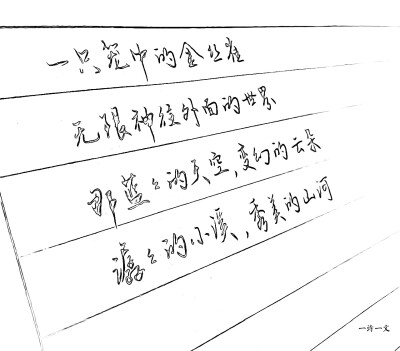 一只笼中的金丝雀
无限神往外面的世界
那蓝々的天空，变幻的云朵
潺々的小溪，秀美的山河
一许一文